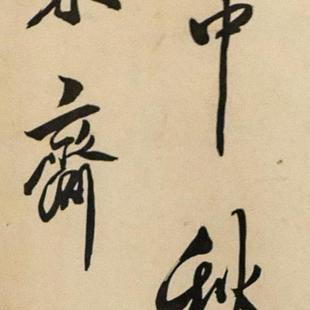 中秋
齋